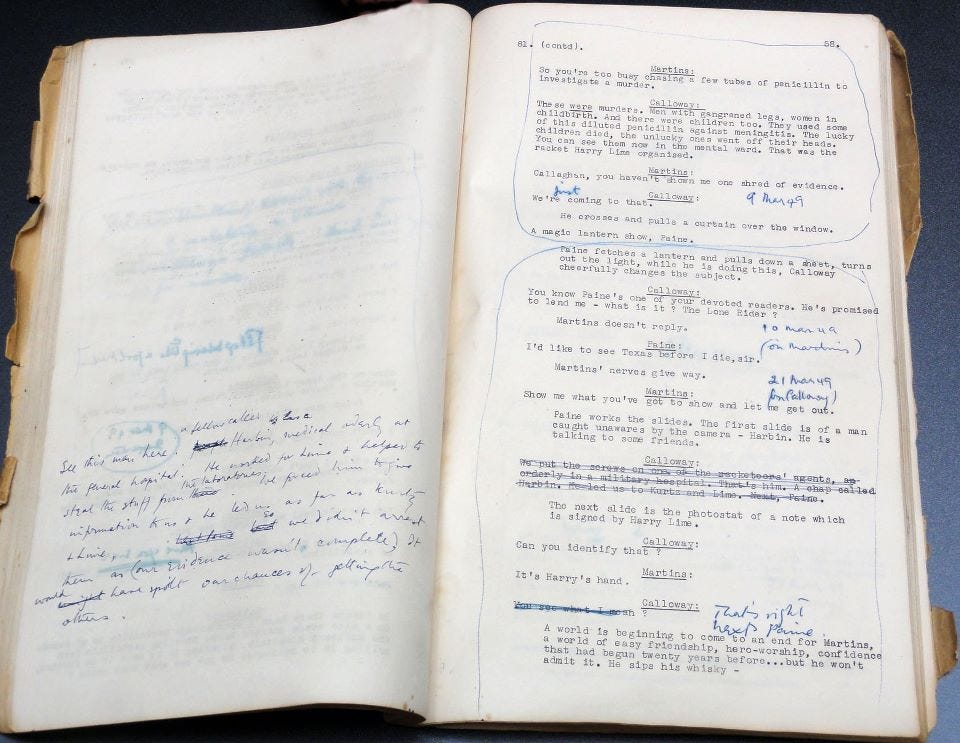 See this man here. a fellow called Joseph
Harbin, medical orderly at
the general hospital. He worked for Lime & helped to
steal the stuff from the laboratories; We forced him to give
information to us & he led us as far as Kurtz
& Lime. But we didn't arrest
them as (our evidence wasn't complete) It
would might have spoilt our chances of getting the
others.
81. (contd). 58.
Martins:
So you're too busy chasing a few tubes of penicillin to
investigate a murder.
Calloway:
These were murders. Men with gangrened legs, women in
childbirth. And there were children too. They used some
of this diluted penicillin against meningitis. The lucky
children died, the unlucky ones went off their heads.
You can see them now in the mental ward. That was the
racket Harry Lime organised.
Martins:
Callaghan, you haven't shown me one shred of evidence.
Calloway: 9 Mar 49
We're just coming to that.
He crosses and pulls a curtain over the window.
A magic lantern show, Paine.
Paine fetches a lantern and pulls down a sheet, turns
out the light, while he is doing this, Calloway
cheerfully changes the subject.
Calloway:
You know Paine's one of your devoted readers. He's promised
to lend me - what is it ? The Lone Rider ?
Martins doesn't reply. 10 Mar 49
Paine: (on Martins)
I'd like to see Texas before I die,sir.
Martins' nerves give way. 21 Mar 49
Martins: (on Calloway)
Show me what you've got to show and let me get out.
Paine works the slides. The first slide is of a man
caught unawares by the camera - Harbin. He is
talking to some friends.
Calloway:
We put the screws on one of the racketeers' agents, an
orderly in a military hospital. That's him. A chap called
Harbin. He led us to Kurtz and Lime. Next, Paine.
The next slide is the photostat of a note which
is signed by Harry Lime.
Calloway:
Can you identify that ?
Martins:
It's Harry's hand.
Calloway: That's right
You see what I mean ? next Paine.
A world is beginning to come to an end for Martins,
a world of easy friendship, hero-worship, confidence
that had begun twenty years before...but he won't
admit it. He sips his whisky -